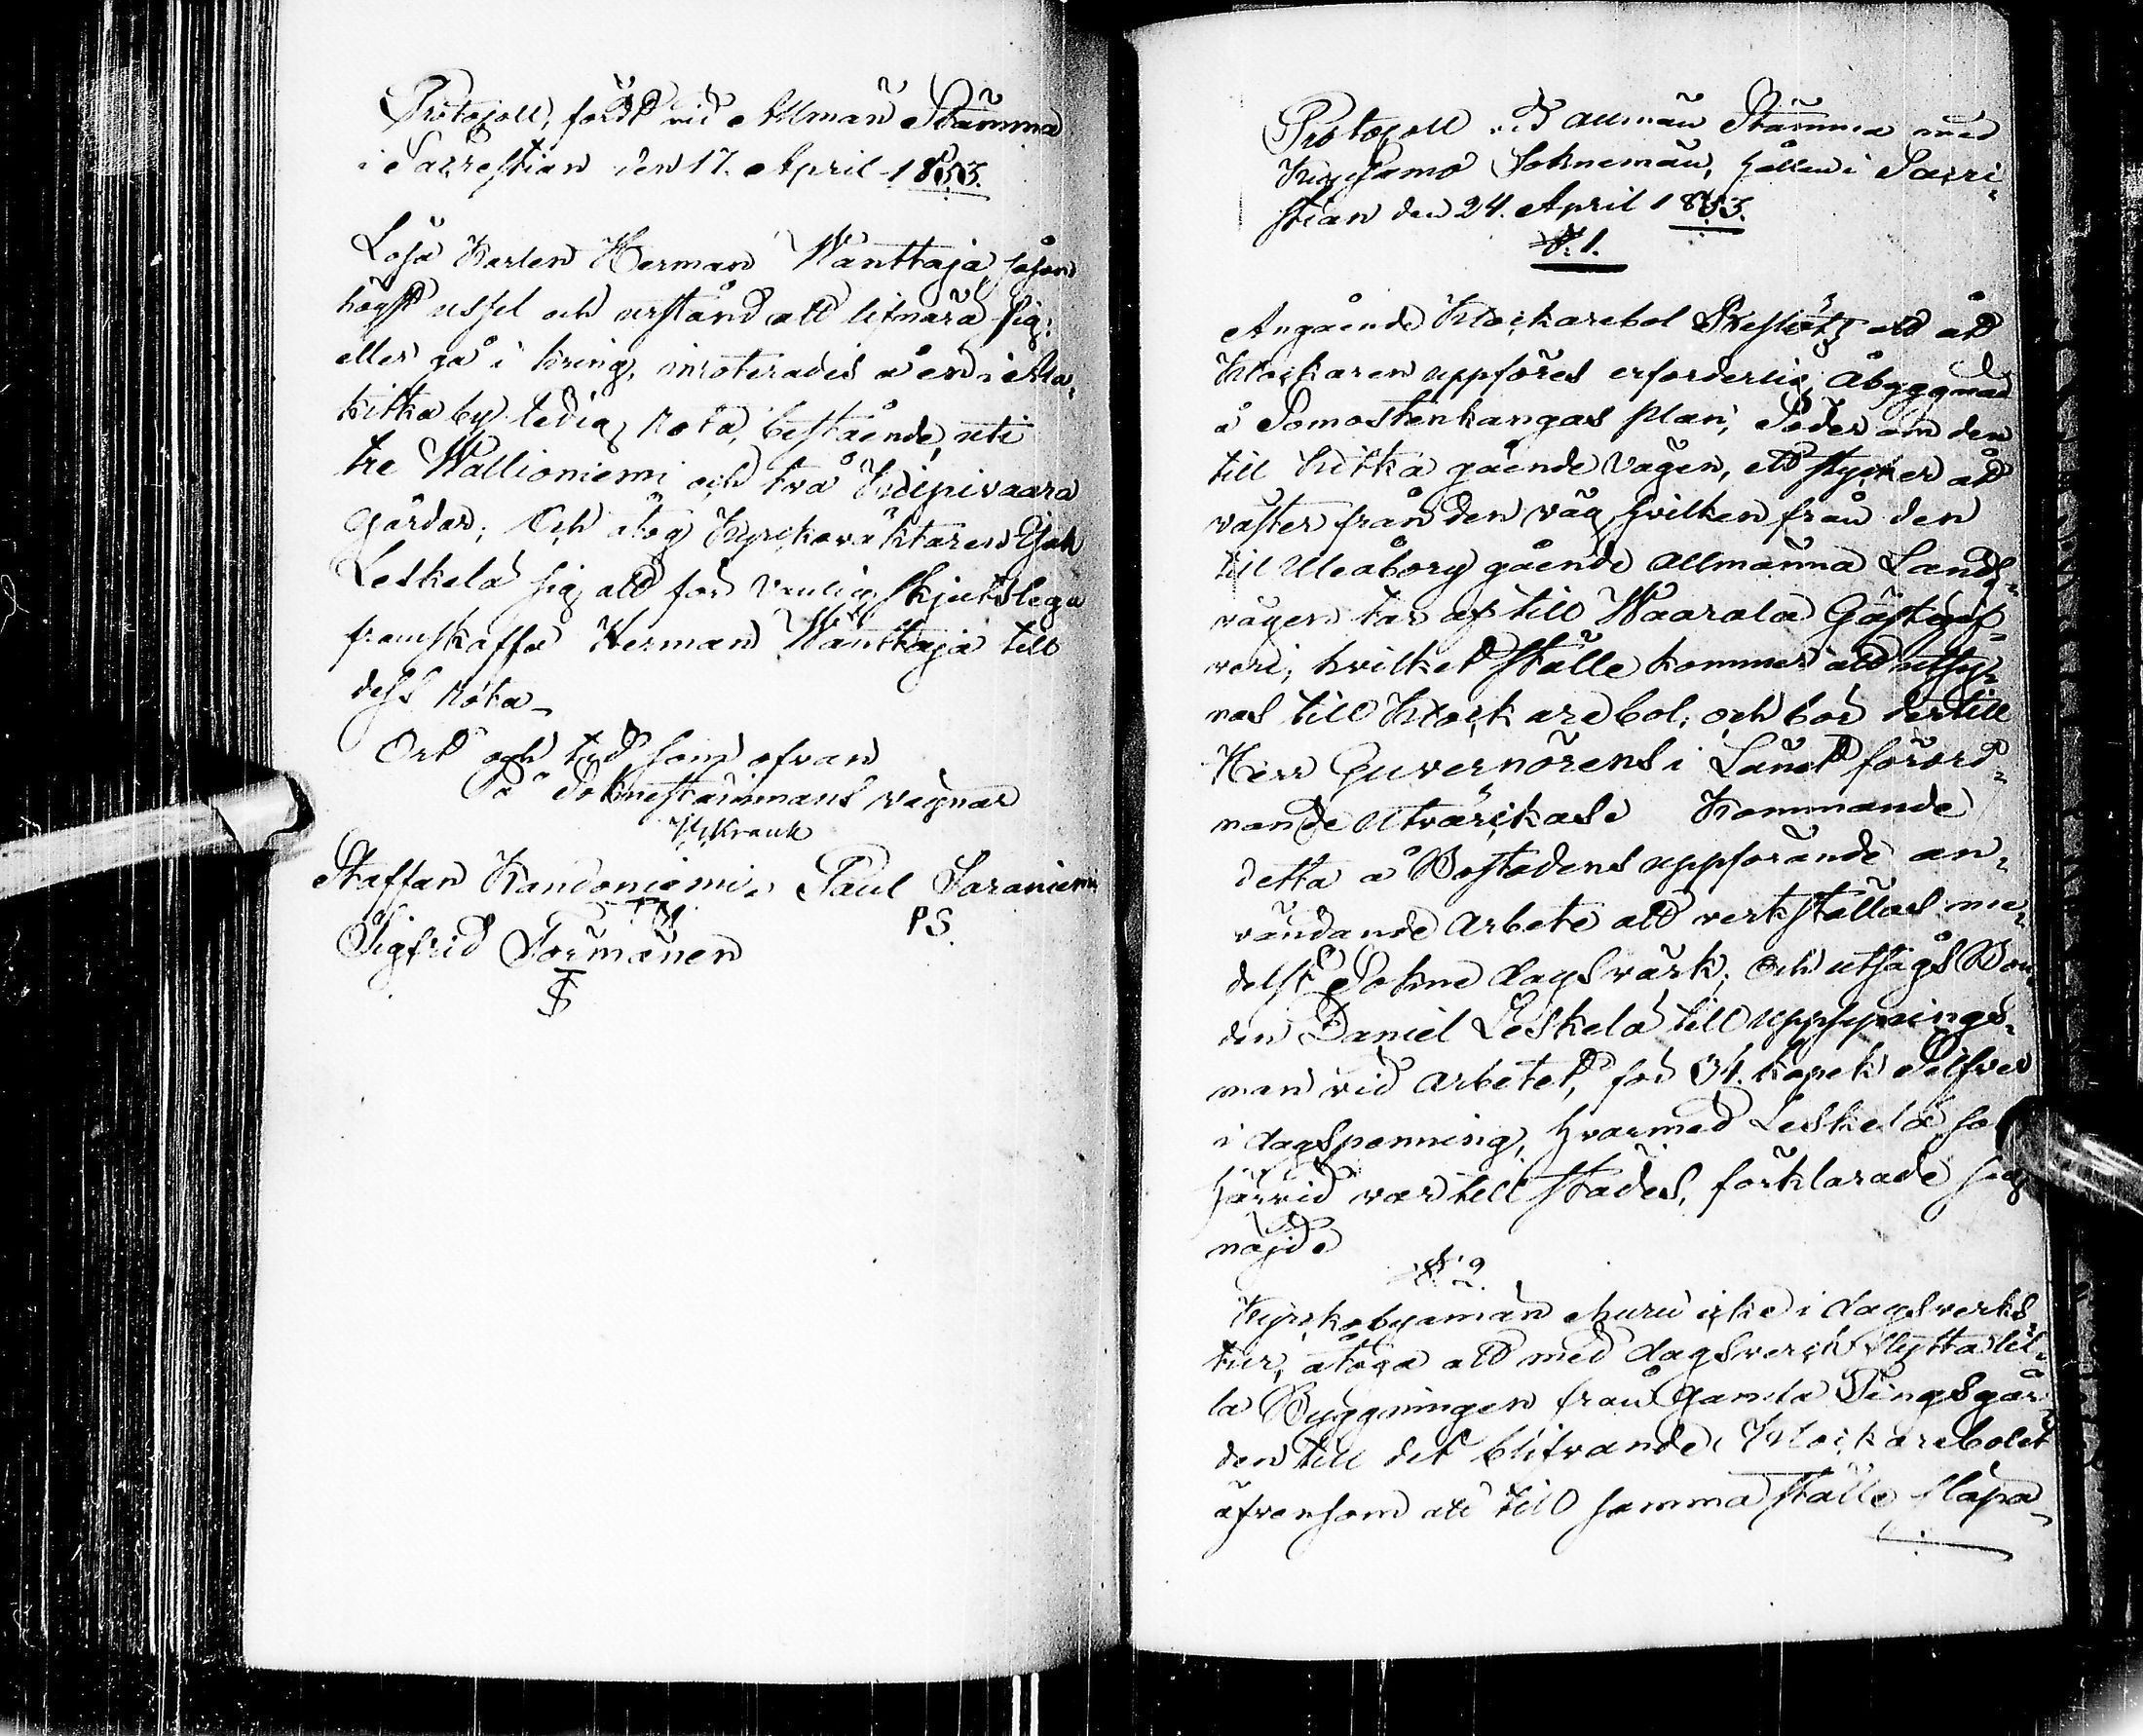 Protocoll, fördt vid Allmän Stämma
i Sacrestian den 17. April 1853.
Lösa Karlen Herman Wänttäjä, såsom
högst ussel och urstånd att lifnära sig,
eller gå i kring, inroterades å en i
kitka by ledig Rota, bestående uti
tre Wallioniemi och två
Gårdar; Och åtog Kyrckoväktaren Joh
Leskelä sig att för vanlig skjutslega
framskaffa Herman Wänttäjä till
dess Rota_
Ort och tid som ofvan
På Soknestämmans vägnar
Staffan Kandoniemi, Paul Saraniemi
PS.
Sigfrid Törmänen
Protocoll vid Allmän Stämma med
Kuusamo Soknemän, hållen i Sacri-
stian den 24. April 1853.
§. 1.
Angående Klockarebol att åt
Klockaren uppföres erforderlig Åbyggnad
å Pomostenkangas plan, Söder om den
till Kitka gående vägen, ett stycke åt
väster från den väg hvilken från den
till Uleåborg gående Allmänna Lands-
vägen tar af till Waarala Gästgif-
veri, hvilket Ställe kommer att utsy-
nas till Klockarebol, och bör dertill
Herr Guvernörens i Länet förord-
nande utvärckas. Kommande
detta å Bostadens uppförande an-
vändande Arbete att verkställas me-
delst Sokne dagsvärk; Och utsågs Bon-
den Daniel Leskelä till uppsynings-
man vid Arbetet, för 34. kopek Silfver
i dagspenning, hvarmed Leskelä, so
härvid var till städes, förklarade sig
nöjd
§ 2.
Kyrkobyamän ehuru icke i dagsverks
tur, åtoga att med dagsverck flytta lil-
la Byggningen från Gamla Tingsgår-
den till det blifvande Klockarebolet
äfvensom att till samma ställe släpa_